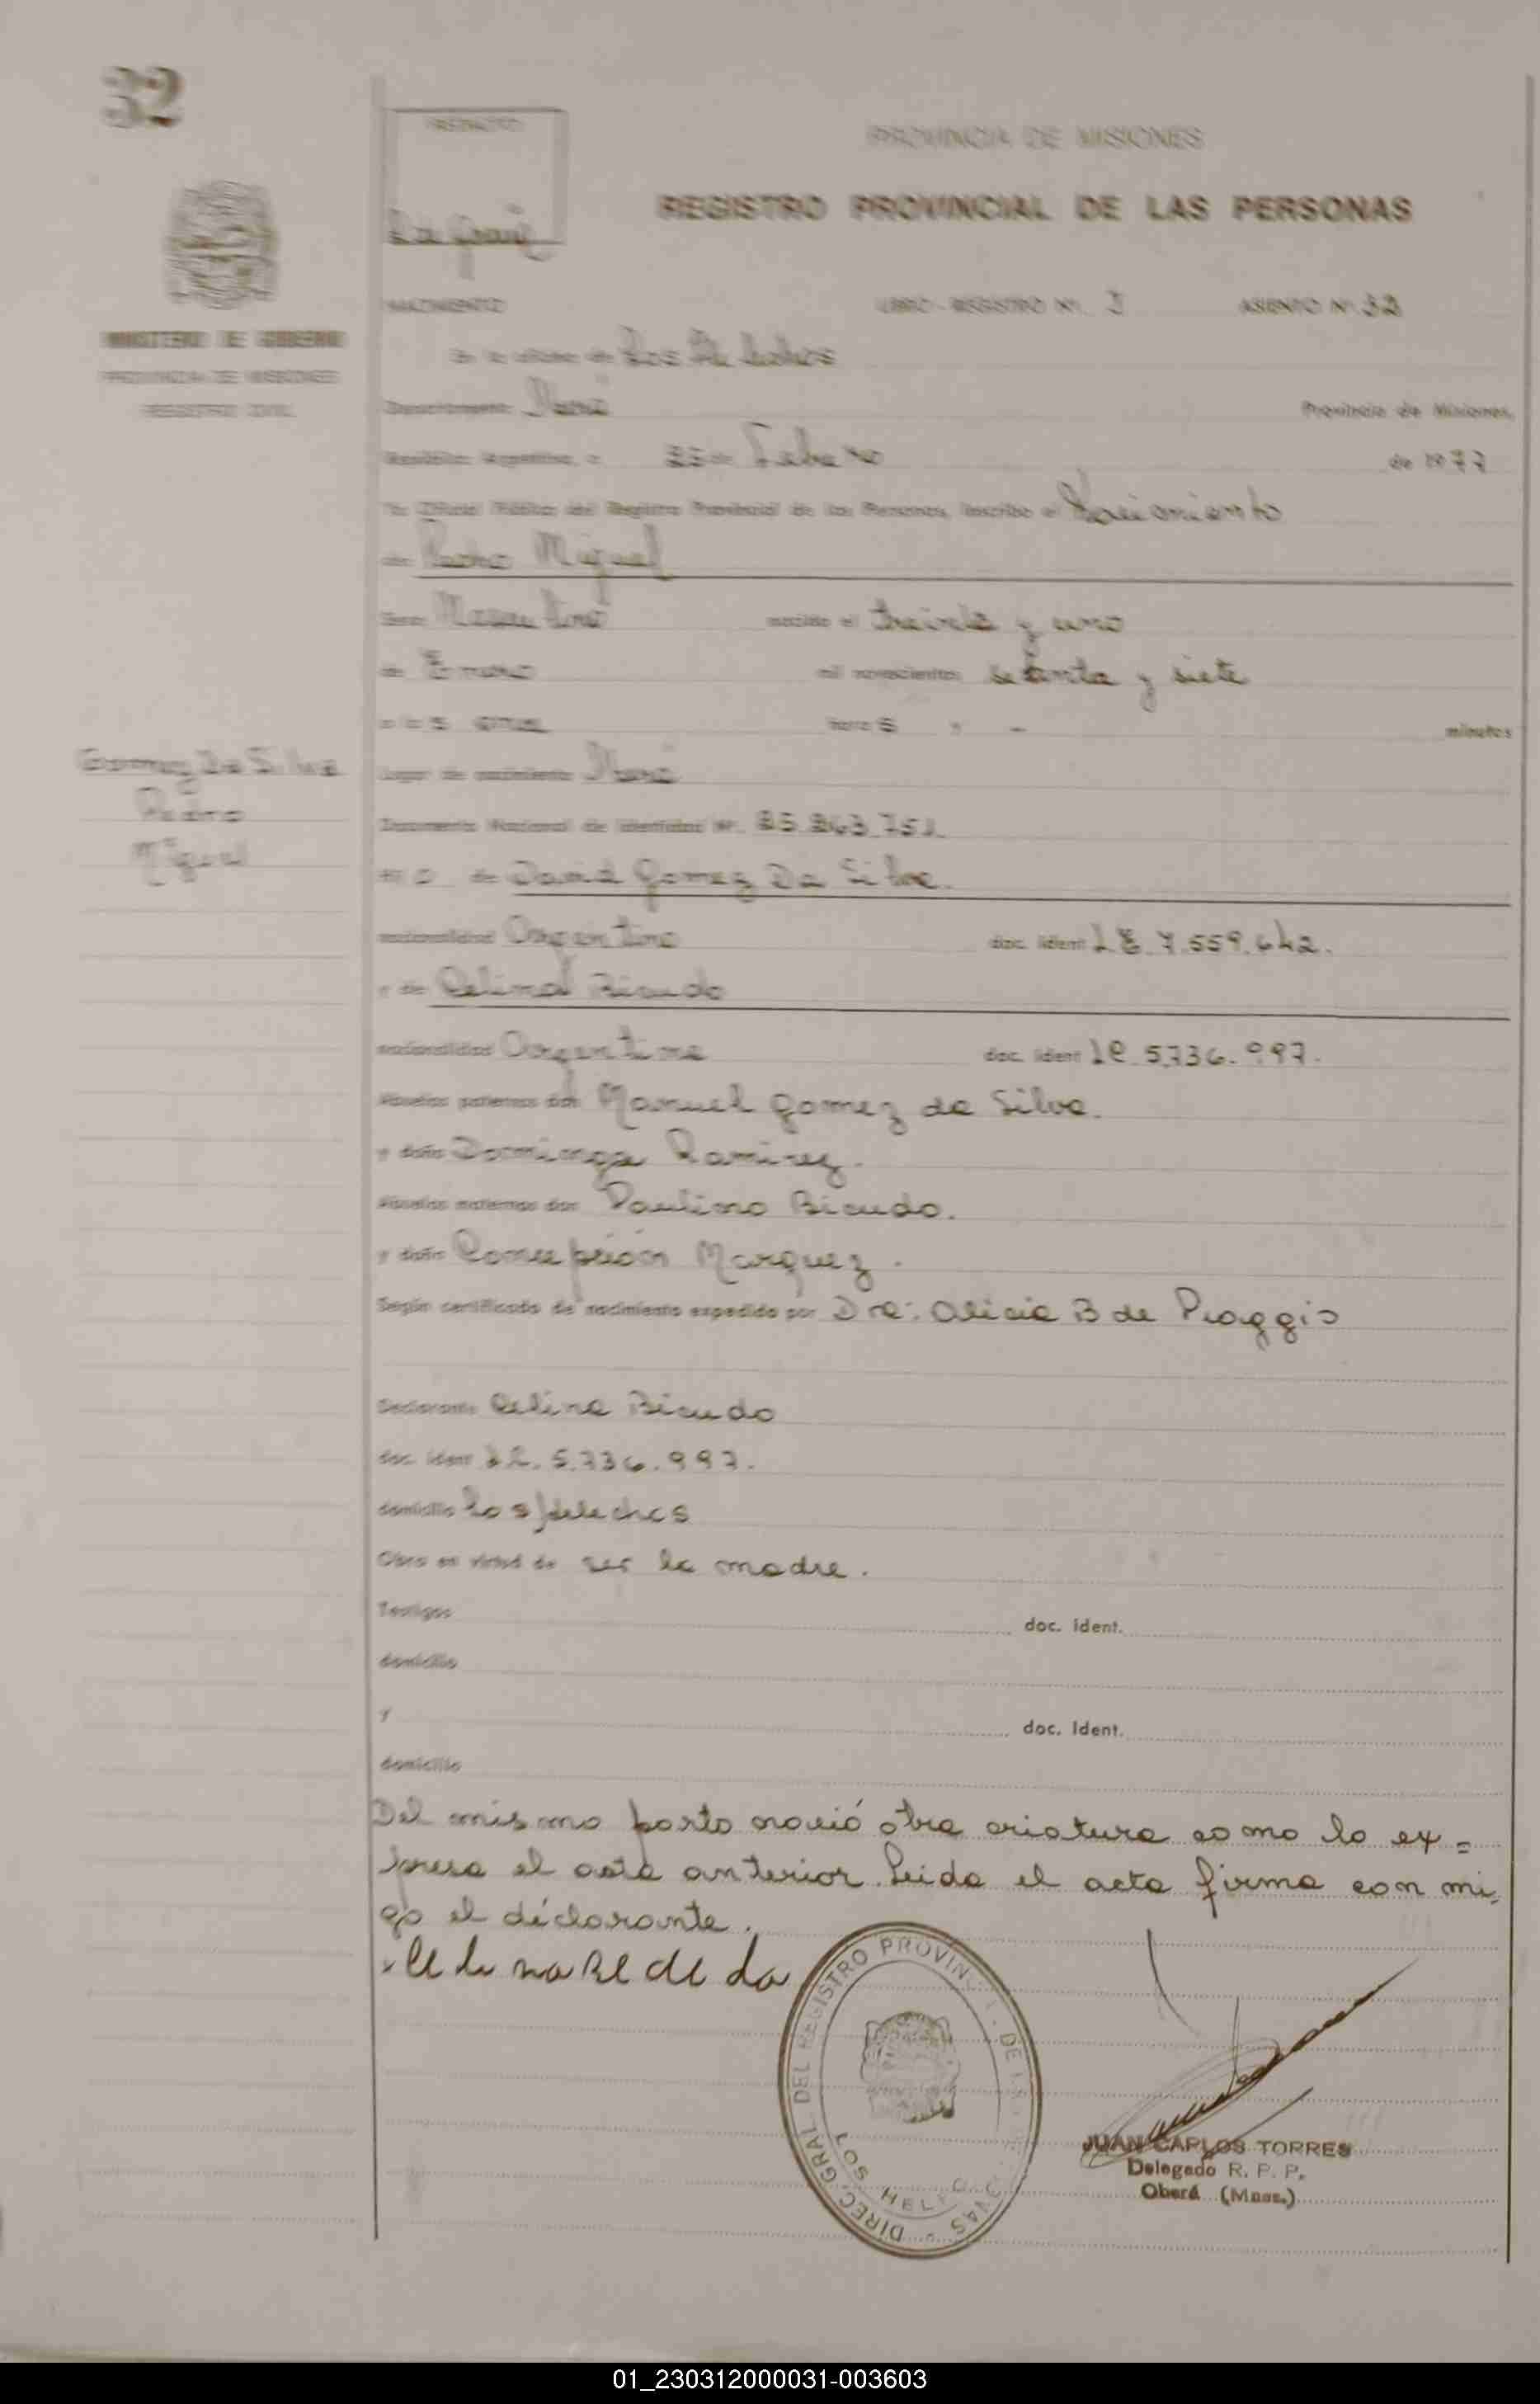 32
PROVINCIA DE MISIONES
REGISTRO PROVINCIAL DE LAS PERSONAS
NACIMIENTO LIBRO - REGISTRO Nº. ASIENTO Nº 32
MINISTERIO DE GOBIERNO
PROVINCIA DE MISIONES
REGISTRO CIVIL
En la oficina de Los Helechos
Departamento Provincia de Misiones,
República Argentina, a de Febrero de 1977
Yo Oficial Público del Registro Provincial de las Personas, inscribo el Nacimiento
de Pedro Miguel
Sexo Masculino nacido el treinta y uno
de Enero mil novecientos setenta y siete
a las once horas y - minutos
Gomez Da Silva
Pedro
Miguel
Lugar de nacimiento
Documento Nacional de Identidad Nº. 25.263.751
HIJO de David Gomez Da Silva.
nacionalidad Argentino doc. ident L E. 7.559.642.
y de Celina Bicudo
nacionalidad Argentina doc. ident LC. 5.736.997.
Abuelos paternos don Manuel Gomez da Silva.
y doña Dominga Ramirez.
Abuelos maternos don Paulino Bicudo.
y doña Concepción Marquez.
Según certificado de nacimiento expedido por Dra: Alicia B de Piaggio
Declarante Celina Bicudo
doc. ident LC. 5.736.997.
domicilio Los Helechos
Obra en virtud de ser la madre.
Testigos doc. ident.
domicilio
y doc. ident.
domicilio
Del mismo parto nació otra criatura como lo ex=
presa el acta anterior. Leida el acta firma con mi,
go el declarante.
DIREC. GRAL. DEL REGISTRO PROVINCIAL DE LAS PERSONAS
LOS HELECHOS
JUAN CARLOS TORRES
Delegado R. P. P.
Oberá (Mnes.)
01_230312000031-003603